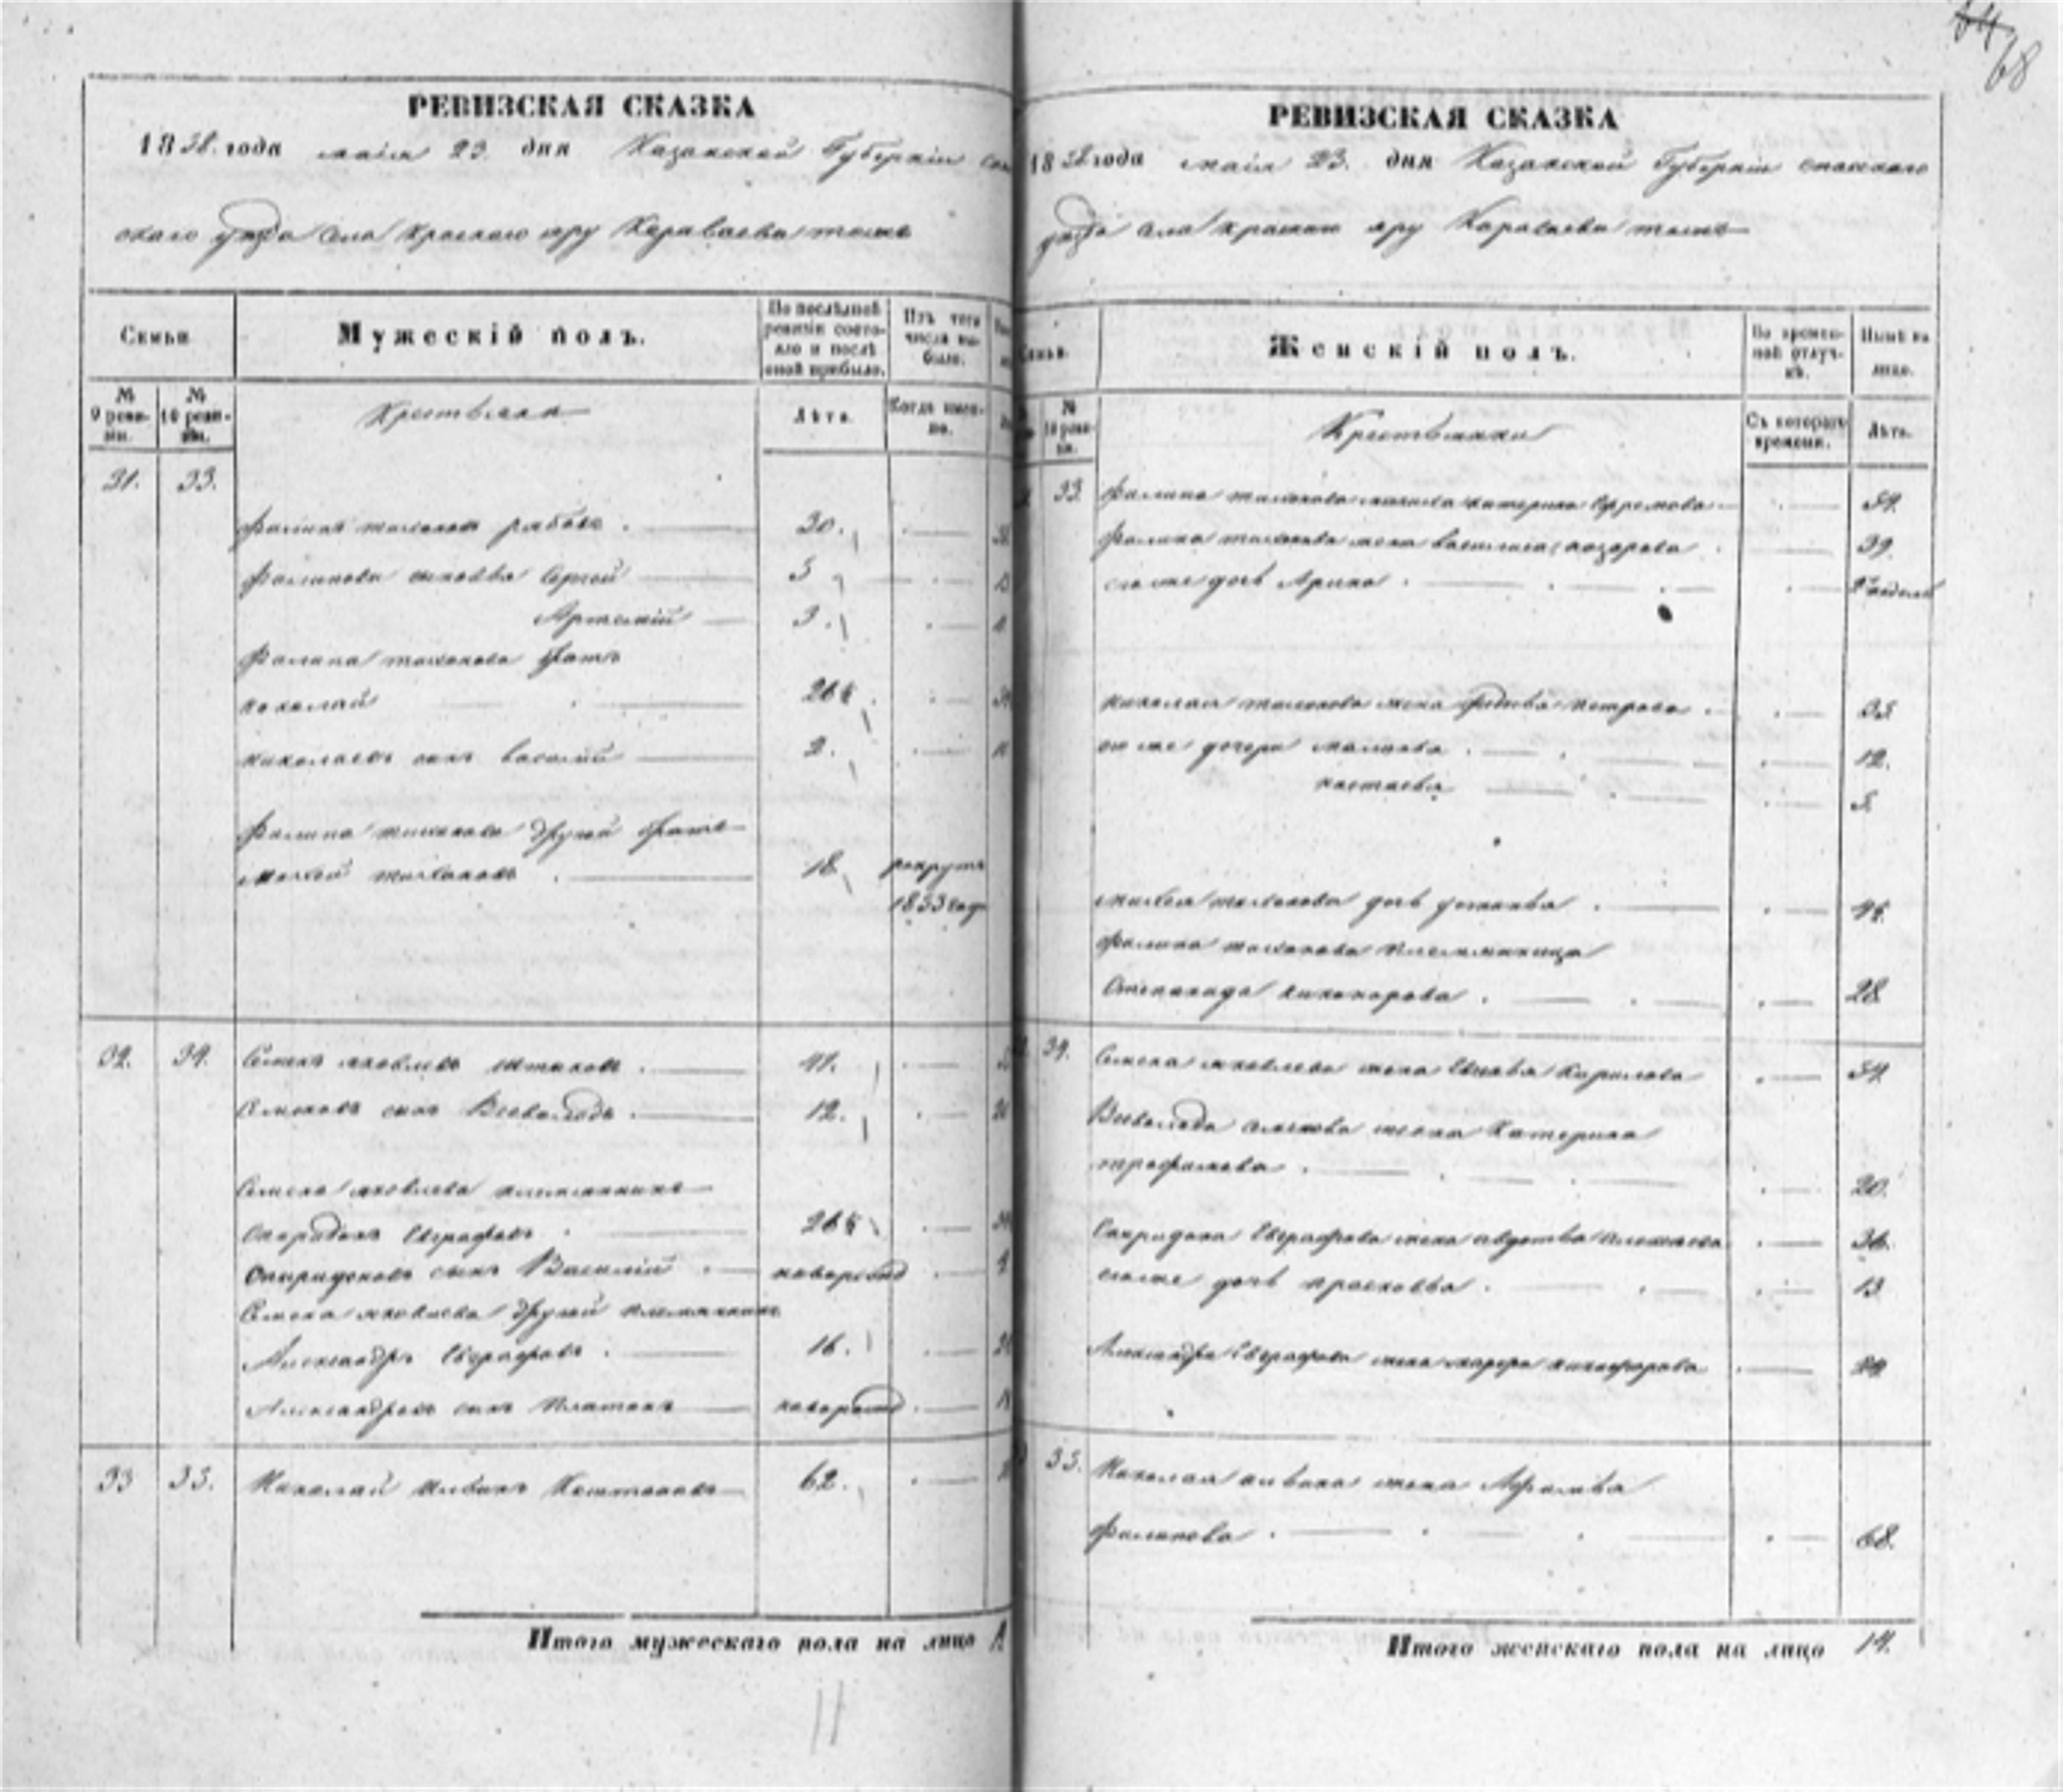 54
68
РЕВИЗСКАЯ СКАЗКА
1858 года маiя 23. дня Казанской Губернiи
скаго уезда села Краснаго яру Караваева тожъ
Семьи
Мужескiй полъ.
По послѣдней ревизiи состояло и послѣ оной прибыло.
Изъ того числа выбыло.
№ 9 ревизiи.
№ 10 ревизiи.
Крестьяне
Лѣта.
Когда именно.
31. 33.
Филипъ тихоновъ рябовъ 30.
Филиповы сыновья Сергей 5
Артемiй 3.
Филипа тихонова братъ
николай 26½
николаевъ сынъ василiй 2.
Филипа тихонова другой братъ
михей тихоновъ 18. рекрутъ
1853 года
32. 34. Семенъ яковлевъ 41.
Семеновъ сынъ Всеволодъ 12.
Семена яковлева племянникъ
Спиридонъ Евграфовъ 26½
Спиридоновъ сынъ Василiй новорожд
Семена яковлева другой племянникъ
Александръ Евграфовъ 16.
Александровъ сынъ Платонъ новорожд
33 35. Николай Каштановъ 62.
Итого мужескаго пола на лицо
11
РЕВИЗСКАЯ СКАЗКА
1858 года маiя 23. дня Казанской Губернiи спаскаго
уезда села краснаго яру Караваева тожъ
Женскiй полъ.
Во временной отлучкѣ.
Нынѣ на лицо.
№ 10 ревизiи.
Крестьянки
Съ котораго времени.
Лѣта.
33. Филипа тихонова мачиха катерина Ефремова 54.
Филипа тихонова жена василиса назарова 39.
его же дочь Арина
николая тихонова жена федосья петрова 35
его же дочери 12.
настасья 5.
михея тихонова дочь устинья
Филипа тихонова племянница
Степанида никонорова 28
34. Семена яковлева жена Кирилова 54
Всеволода семенова жена Катерина
трофимова 20.
Спиридона Евграфова жена авдотья алексеева 36.
его же дочь прасковья 13
Александра Евграфова жена марфа никифорова 24
35. Николая жена Афимья
Филипова 68.
Итого женскаго пола на лицо 14.